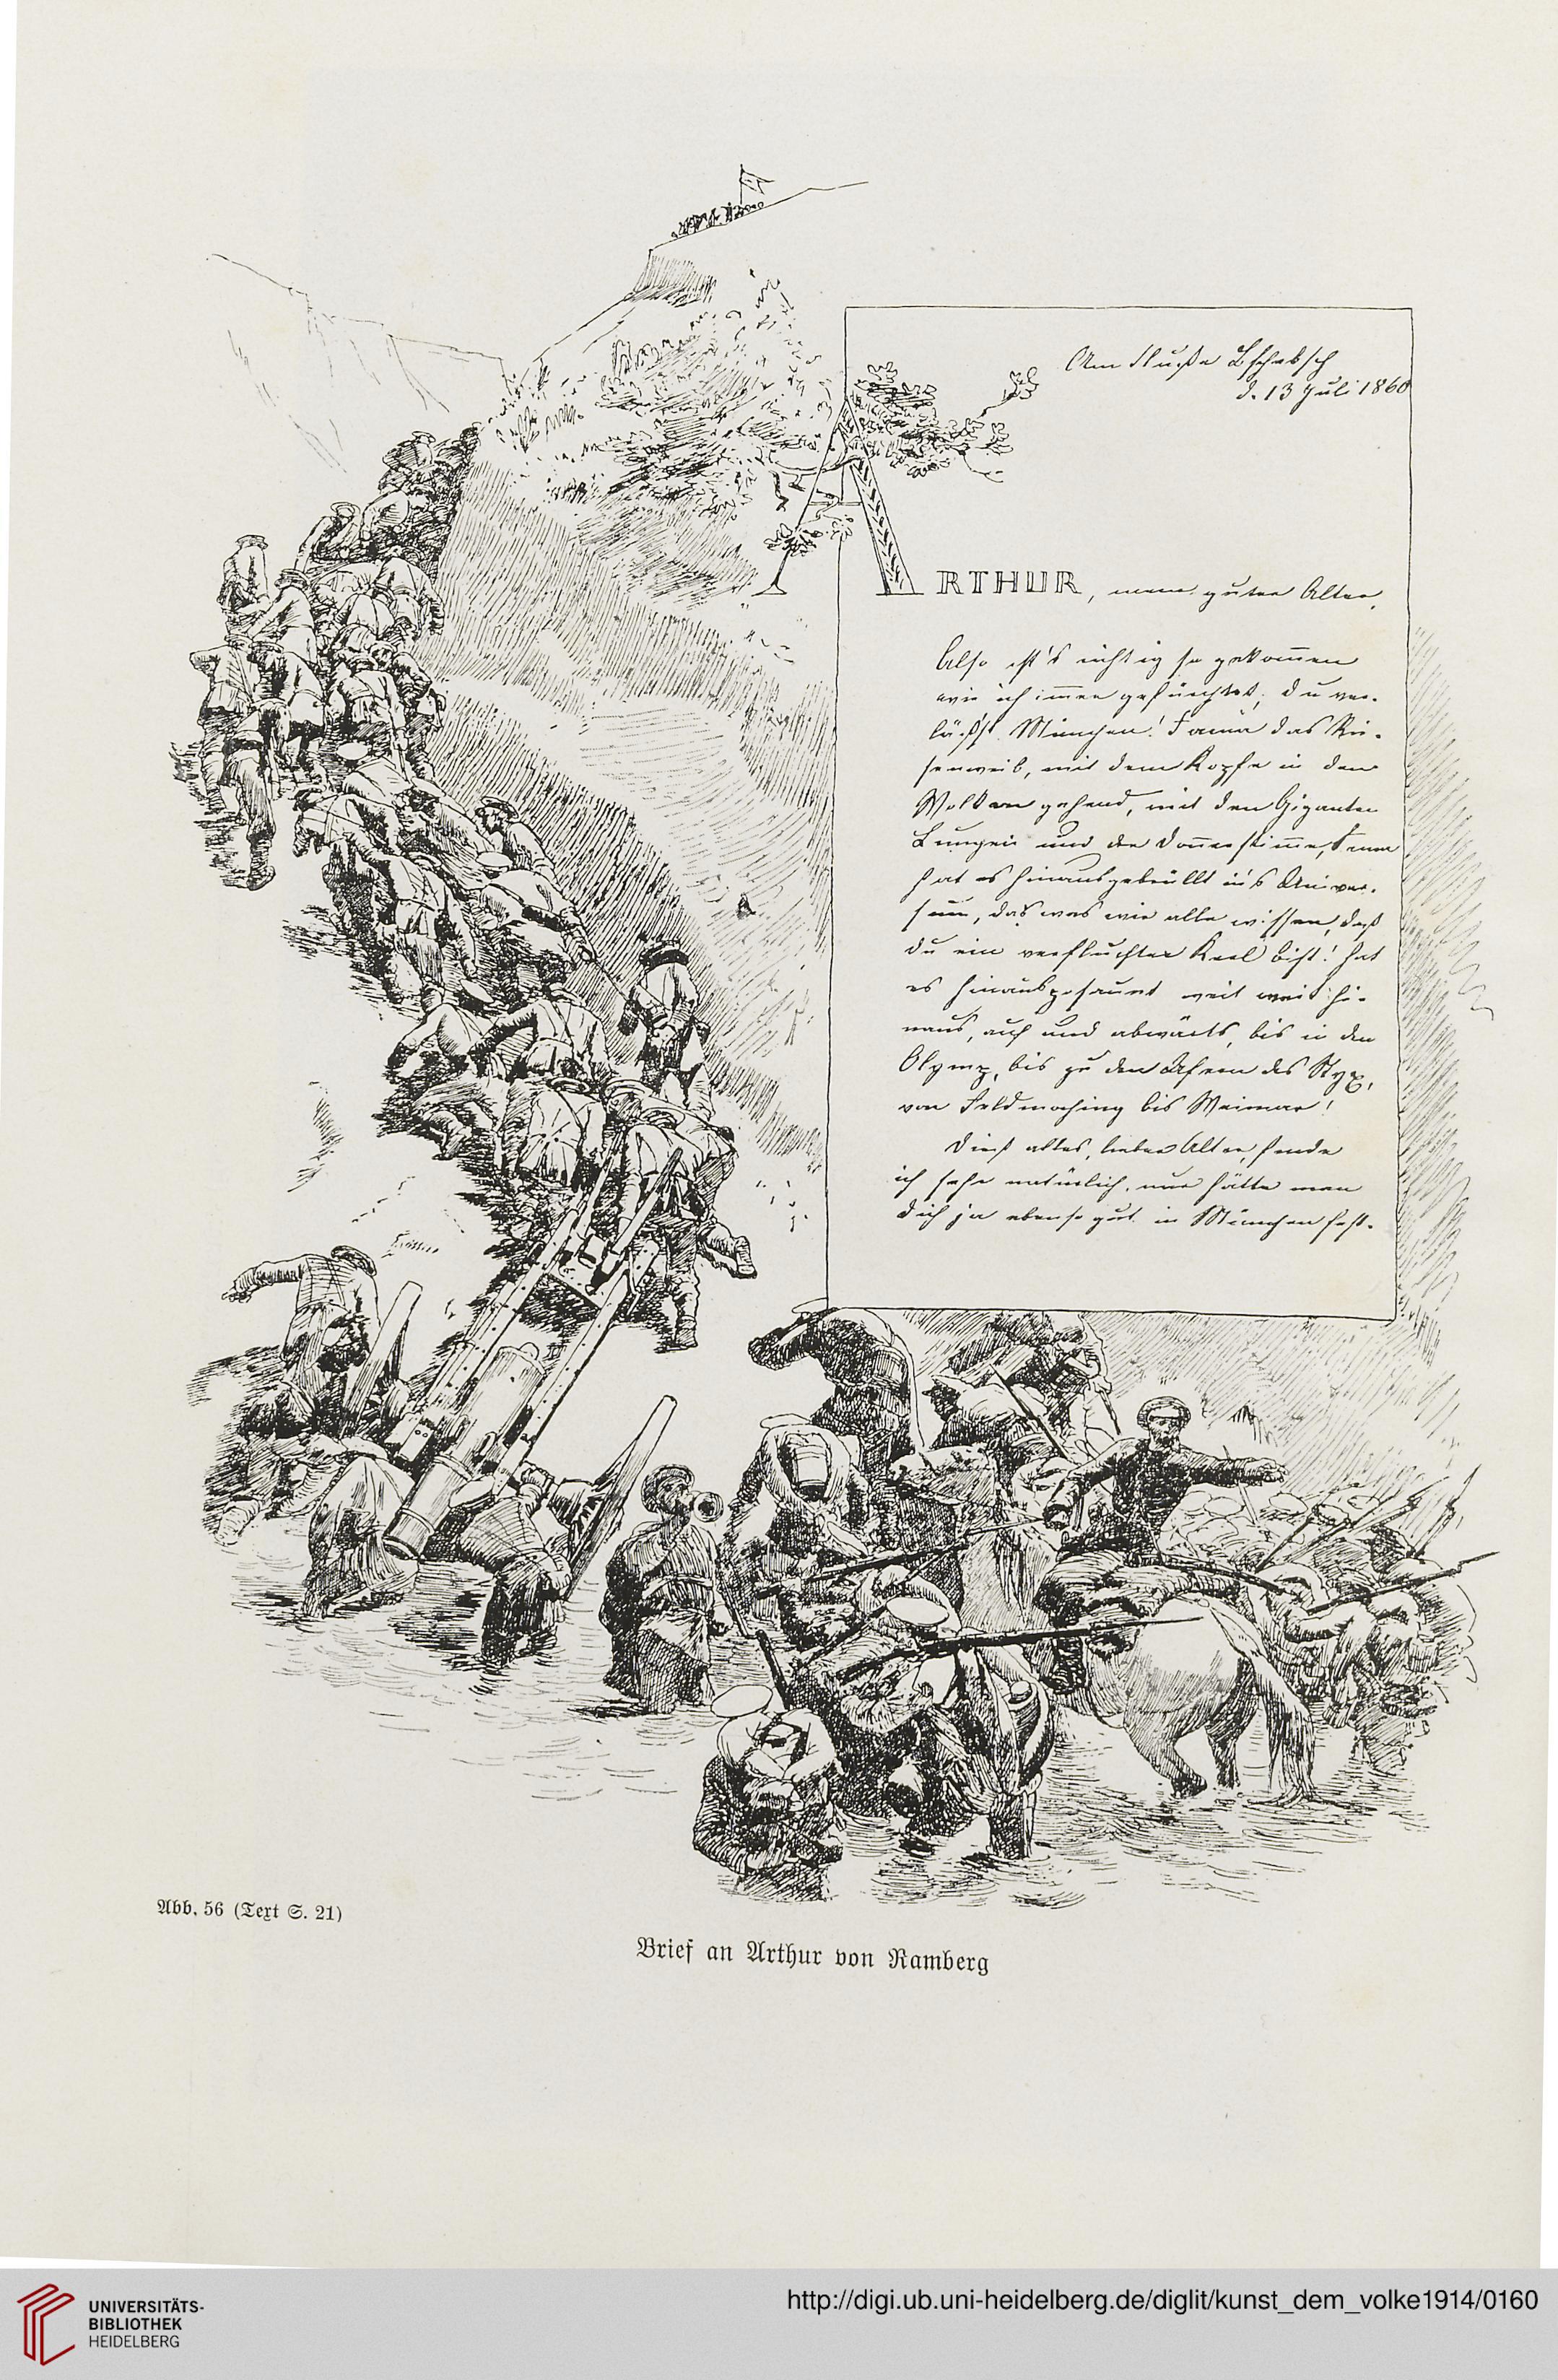 Am Fluße Tschebsch
d. 13 Juli 1860
ARTHUR, mein guter Alter,
Also ist's richtig so gekom̄en
wie ich im̄er gefürchtet, du ver-
läßt München! Fama das Rie-
senweib, mit dem Kopfe in den
Wolken gehend, mit den Giganten
Lungen und der Don̄erstim̄e, Fama
hat es hinausgebrüllt in's Univer-
sum, das was wir alle wissen, daß
du ein verfluchter Kerl bist! hat
es hinausposaunt weit weit hi-
naus, auf und abwärts, bis in den
Olymp, bis zu den Ufern des Styx,
von Feldmoching bis Weimar!
Dieß alles, lieber Alter, finde
ich sehr natürlich, nur hätte man
dich ja ebenso gut in München fest-
Abb. 56 (Text S. 21)
Brief an Arthur von Ramberg
UNIVERSITÄTS-
BIBLIOTHEK
HEIDELBERG
http://digi.ub.uni-heidelberg.de/diglit/kunst_dem_volke1914/0160